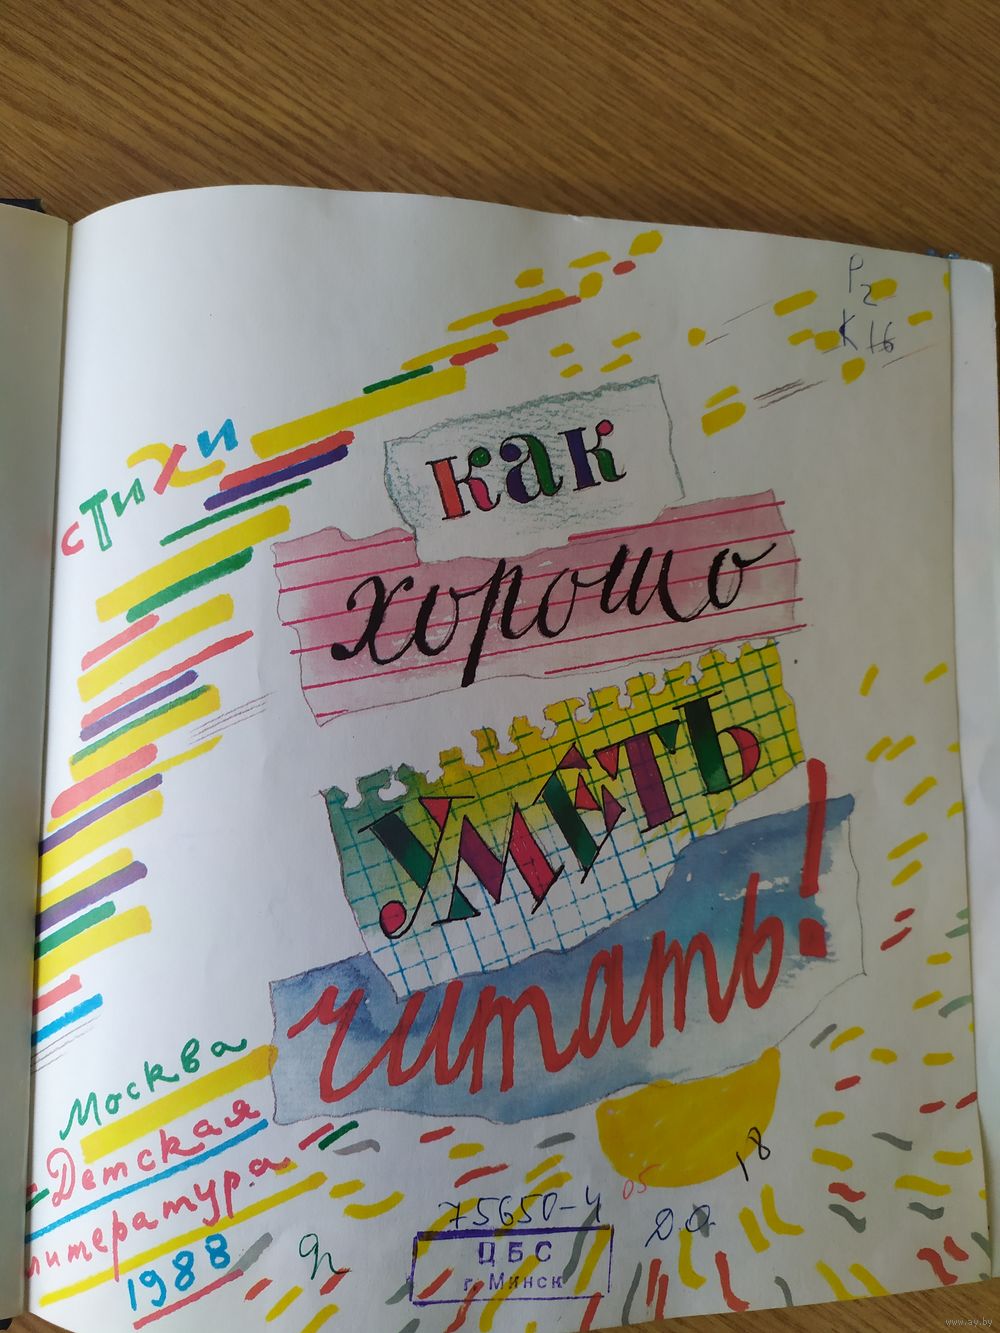 Р2
К 16
стихи
как
хорошо
уметь
читать!
Москва
Детская
литература
1988
75650-4
05
18
ЦБС
г. Минск
www.ay.by